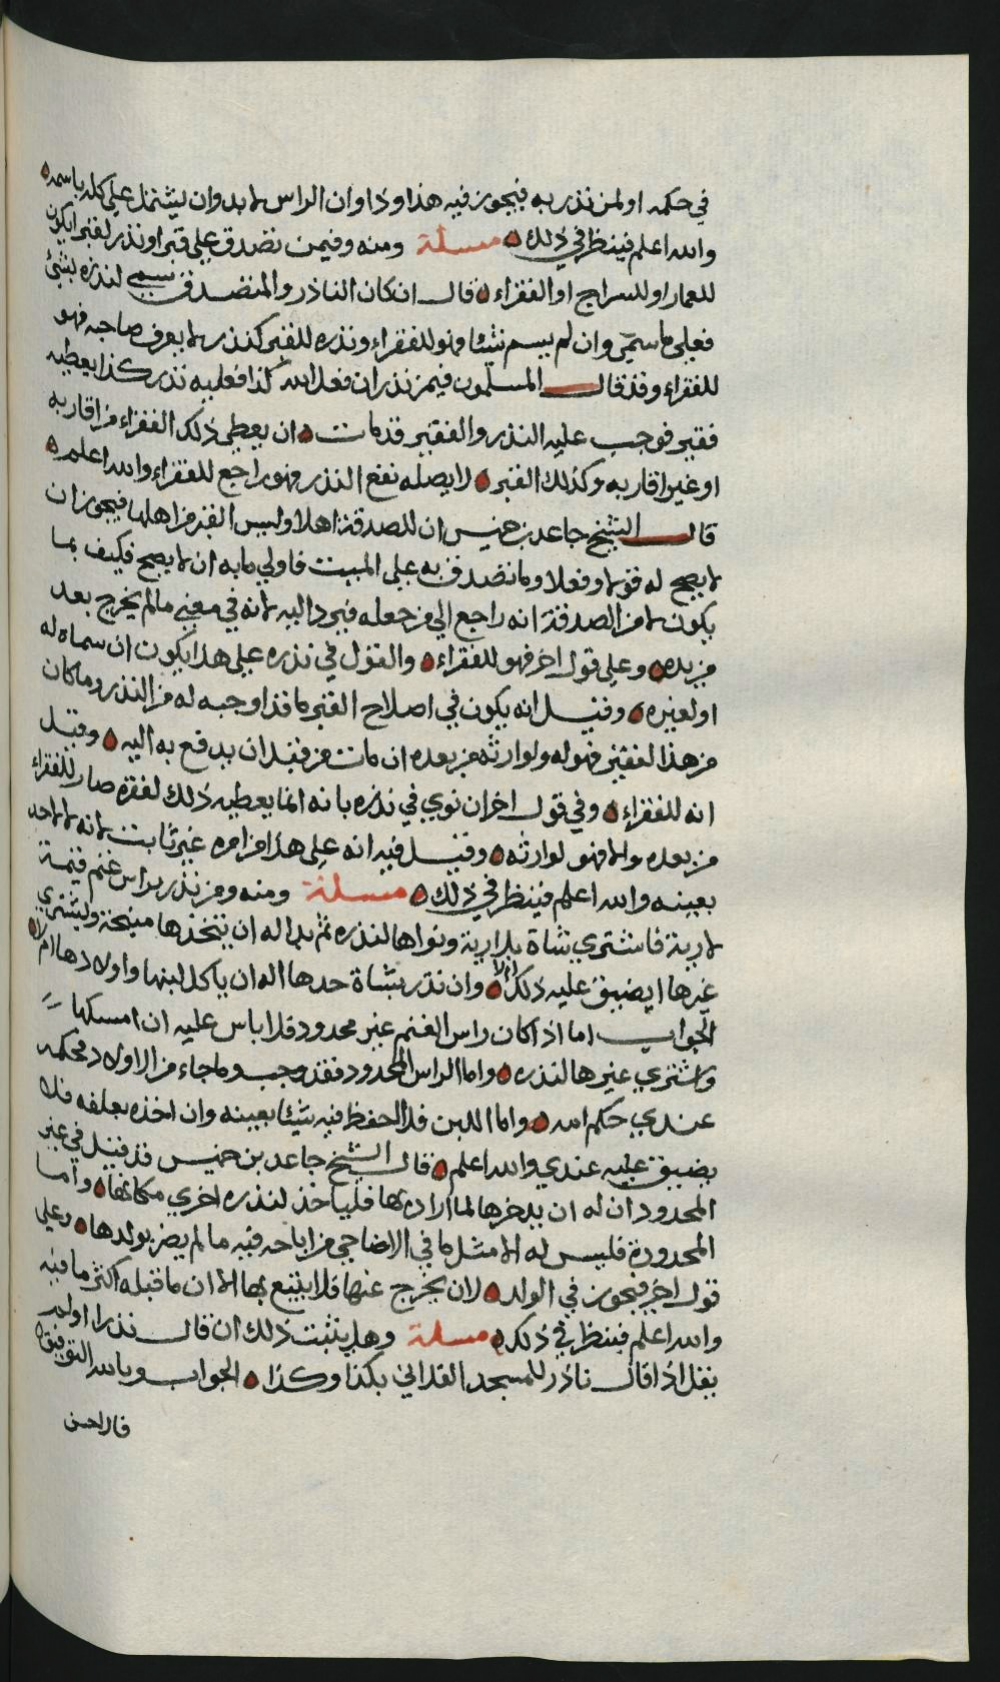 في حكمه اولمن نذر به فيجوز فيه هذا وذا وان الراس لا بد وان يشتمل علي كله باسمه
والله اعلم فينظر في ذلك مسئلة ومنه وفيمن تصدق علي قبر او نذر لقبر ايكون
للعمار او للسراج او الفقراء قال ان كان الناذر والمتصدق سمي لنذره بشئ
فعلي ما سمّي وان لم يسم شيئا فهو للفقراء ونذره للقبر كنذر لا يعرف صاحبه فهو
للفقراء وقد قال المسلمون فيمن نذر ان فعل الله كذا فعليه نذر كذا يعطيه
فقير فوجب عليه النذر والفقير قد مات ان يعطي ذلك الفقراء من اقاربه
او غير اقاربه وكذلك القبر لا يصله نفع النذر فهو راجع للفقراء والله اعلم
قال الشيخ جاعد بن خميس ان للصدقة اهلا وليس القبر من اهلها فيجوز ان
لا يصح له قولا وفعلا وما تصدق به علي الميت فاولي ما به ان لا يصح فكيف بما
يكون لا من الصدقة انه راجع الي من جعله فيرد اليه لانه في معني ما لم يخرج بعد
من يده وعلي قول اخر فهو للفقراء والقول في نذره علي هذا يكون ان سماه له
او لغيره وقيل انه يكون في اصلاح القبر ما قد اوجبه له من النذر وما كان
من هذا لفقير فهو له ولوارثه من بعده ان مات من قبل ان يدفع به اليه وقيل
انه للفقراء وفي قول اخر ان نوي في نذره بانه انما يعطيه ذلك لفقره صار للفقراء
من بعده والا فهو لوارثه وقيل فيه انه علي هذا من امره غير ثابت لانه لا لاحد
بعينه والله اعلم فينظر في ذلك مسئلة ومنه ومن نذر براس غنم قيمة
لارية فاشتري شاة بلارية ونواها لنذره ثم بدا له ان يتخذها منيحة ويشتري
غيرها ايضيق عليه ذلك ام لا وان نذر بشاة حدها اله ان ياكل لبنها واولادها ام لا
الجواب اما اذا كان راس الغنم غير محدود فلا باس عليه ان امسكها
واشتري غيرها لنذره واما الراس المحدود فقد وجب وما جاء من الاولاد فحكمه
عندي حكم امه واما اللبن فلا احفظ فيه شيئا بعينه وان اخذه بعلفه فلا
يضيق عليه عندي والله اعلم قال الشيخ جاعد بن خميس قد قيل في غير
المحدود ان له ان يدخرها لما اراد بها فلياخذ لنذره اخري مكانها واما
المحدودة فليس له الا مثل ما في الاضاحي من اباحه فيه ما لم يضر بولدها وعلي
قول اخر فيجوز في الولد لان يخرج عنها فلا يتبع بها الا ان ما قبله اكثر ما فيه
والله اعلم فينظر في ذلك مسئلة وهل يثبت ذلك ان قال نذرا او لم
يقل اذا قال ناذر للمسجد الفلاني بكذا وكذا الجواب وبالله التوفيق
قال احسن